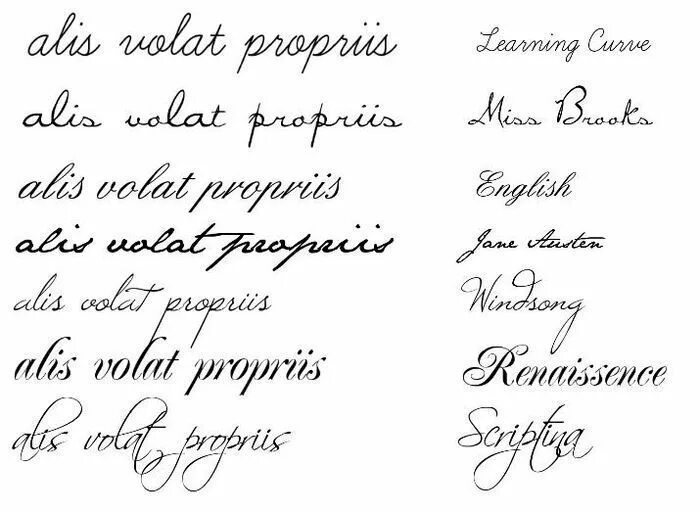 alis volat propriis Learning Curve
alis volat propriis Miss Brooks
alis volat propriis English
alis volat propriis Jane Austen
alis volat propriis Windsong
alis volat propriis Renaissence
alis volat propriis Scriptina